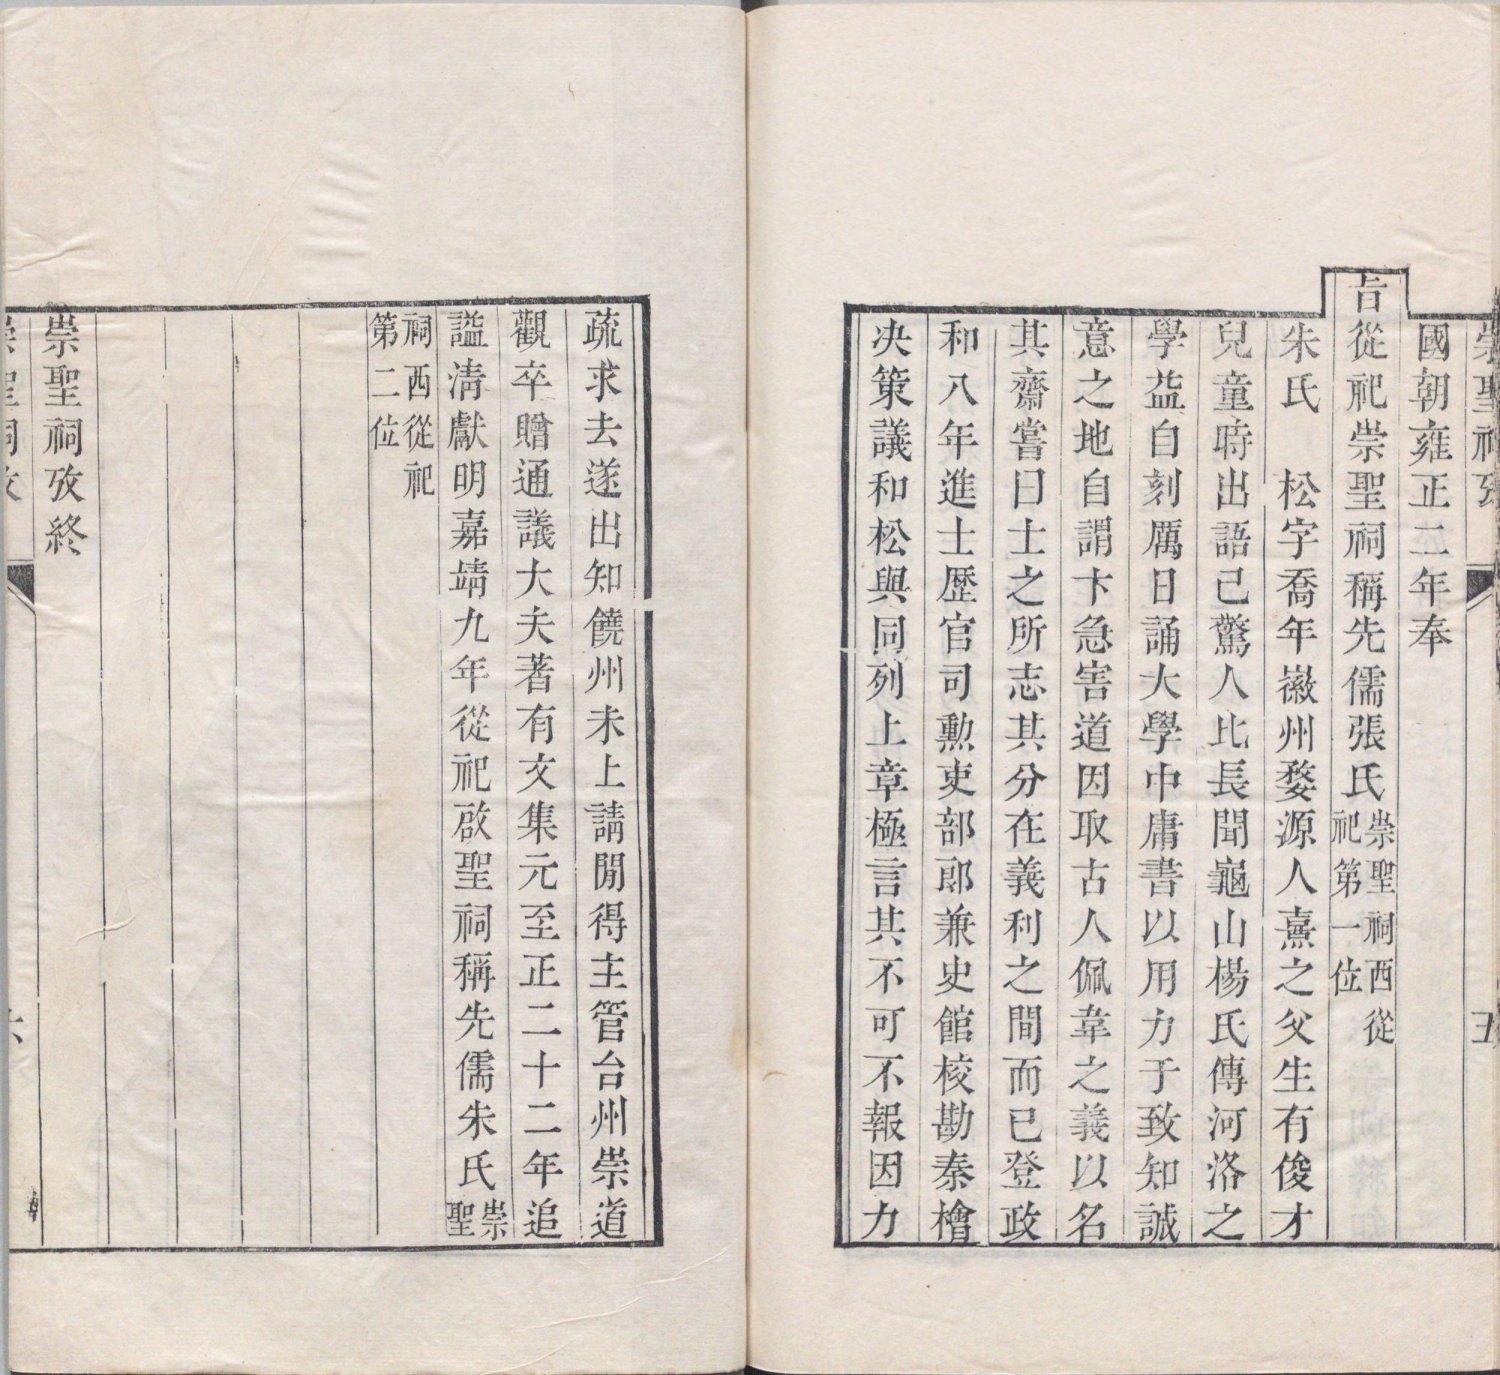 崇聖祠攷 五
國朝雍正二年奉
旨從祀崇聖祠稱先儒張氏崇聖祠西從
祀第一位
朱氏 松字喬年徽州婺源人熹之父生有俊才
兒童時出語已驚人比長聞龜山楊氏傳河洛之
學益自刻厲日誦大學中庸書以用力于致知誠
意之地自謂卞急害道因取古人佩韋之義以名
其齋嘗曰士之所志其分在義利之間而已登政
和八年進士歷官司勳吏部郎兼史館校勘秦檜
决策議和松與同列上章極言其不可不報因力
疏求去遂出知饒州未上請閒得主管台州崇道
觀卒贈通議大夫著有文集元至正二十二年追
諡淸獻明嘉靖九年從祀啟聖祠稱先儒朱氏崇
聖
祠西從祀
第二位
崇聖祠攷終
崇聖祠攷 六